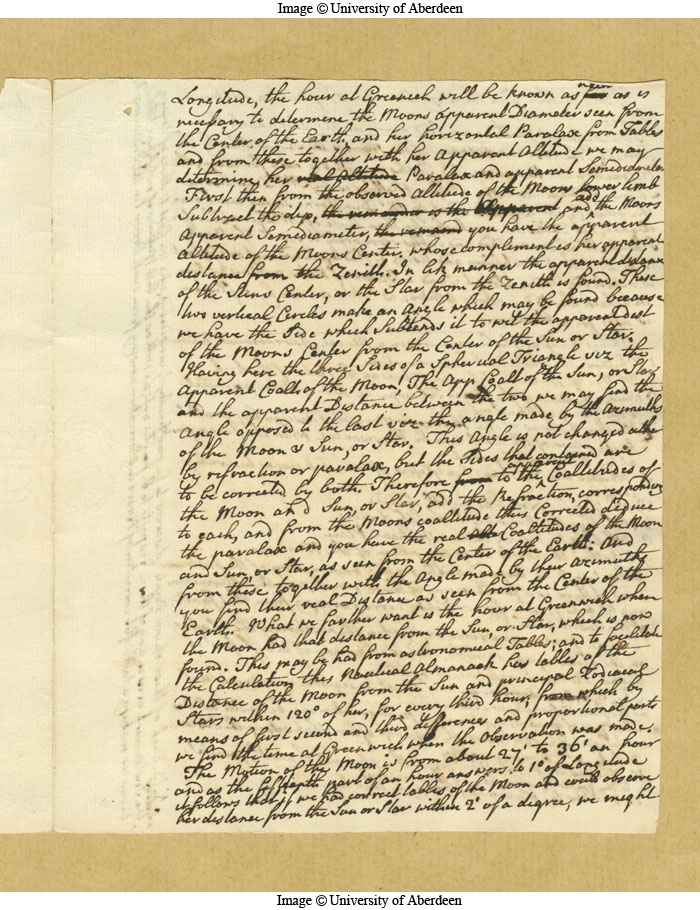 Image © University of Aberdeen
Longitude, the hour at Greenwich will be known as near as is
necessary to determine the Moons apparent Diameter seen from
the Center of the Earth, and her horizontal Paralax from Tables
and from these together with her Apparent Altitude we may
determine her real Altitude Paralax and apparent Semediameter
First then from the observed altitude of the Moons lower limb
Subtract the dip, the remainder is the Apparent add and the Moons
Apparent Semediameter, the remaind you have the apparent
Altitude of the Moons Center. whose complement is her apparent
distance from the Zenith. In like manner the apparent distance
of the Suns Center, or the Star from the Zenith is found. These
two vertical Circles make an Angle which may be found because
we have the Side which Subtends it to wit the apparent Dist
of the Moons Center from the Center of the Sun or Star.
Having here the three Sides of a Spherical Triangle viz the
Apparent Coalt of the Moon, The App Coalt of the Sun, or Star
and the apparent Distance between the two, we may find the
Angle opposed to the last viz the angle made by the Azimuths
of the Moon & Sun, or Star. This Angle is not changed either
by refraction or paralax, but the Sides that contained are
to be corrected by both. Therefore from to the Coaltitudes of
the Moon and Sun, or Star, add the Refraction, corresponding
to each, and from the Moons coaltitude thus Corrected deduce
the paralax and you have the real Alt Coaltitudes of the Moon
and Sun, or Star, as seen from the Center of the Earth: And
from these together with the Angle made by their azimuths
you find their real Distance as seen from the Center of the
Earth. What we farther want is the hour at Greenwich when
the Moon had that distance from the Sun, or Star, which is now
found. This may be had from astronomical Tables; and to facilitate
the Calculation this Nautical Almanack has tables of the
Distance of the Moon from the Sun and principal Zodiacal
Stars within 120° of her, for every third hour, from which by
means of first second and third differences and proportional parts
we find the time at Greenwich when the Observation was made.
The Motion of the Moon is from about 27' to 36' an hour
and as the fifteenth part of an hour answers to 1° of Longitude
it follows that if we had correct tables of the Moon and could observe
her distance from the Sun or Star within 2' of a degree, we might
Image © University of Aberdeen